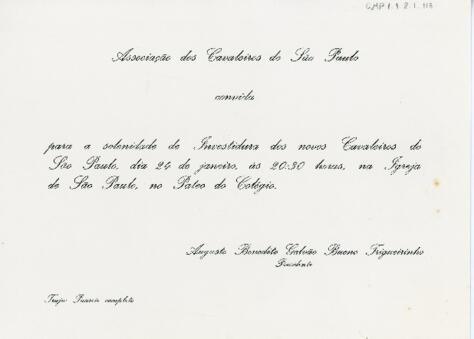 Associação dos Cavaleiros de São Paulo
convida
para a solenidade de Investidura dos novos Cavaleiros de
São Paulo, dia 24 de janeiro, às 20:30 horas, na Igreja
de São Paulo, no Pateo do Colégio.
Augusto Benedito Galvão Bueno Trigueirinho
Presidente
Traje Passeio completo